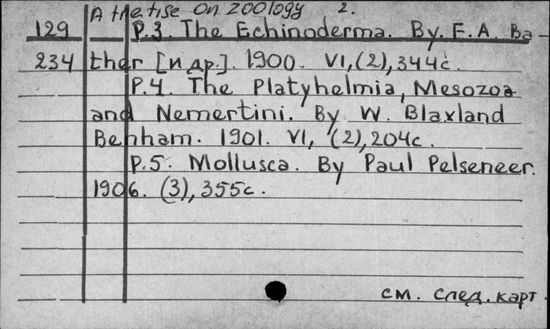 A thetise on zoology 2.
129 P.3. The Echinoderma. By. E.A. Ba-
234 ther [и др.]. 1900. VI,(2),344с.
P.4. The Platyhelmia, Mesozoa
and Nemertini. By W. Blaxland
Benham. 1901. VI, (2),204с.
P.5. Mollusca. By Paul Pelseneer.
1906. (3),355с.
см. след. карт.